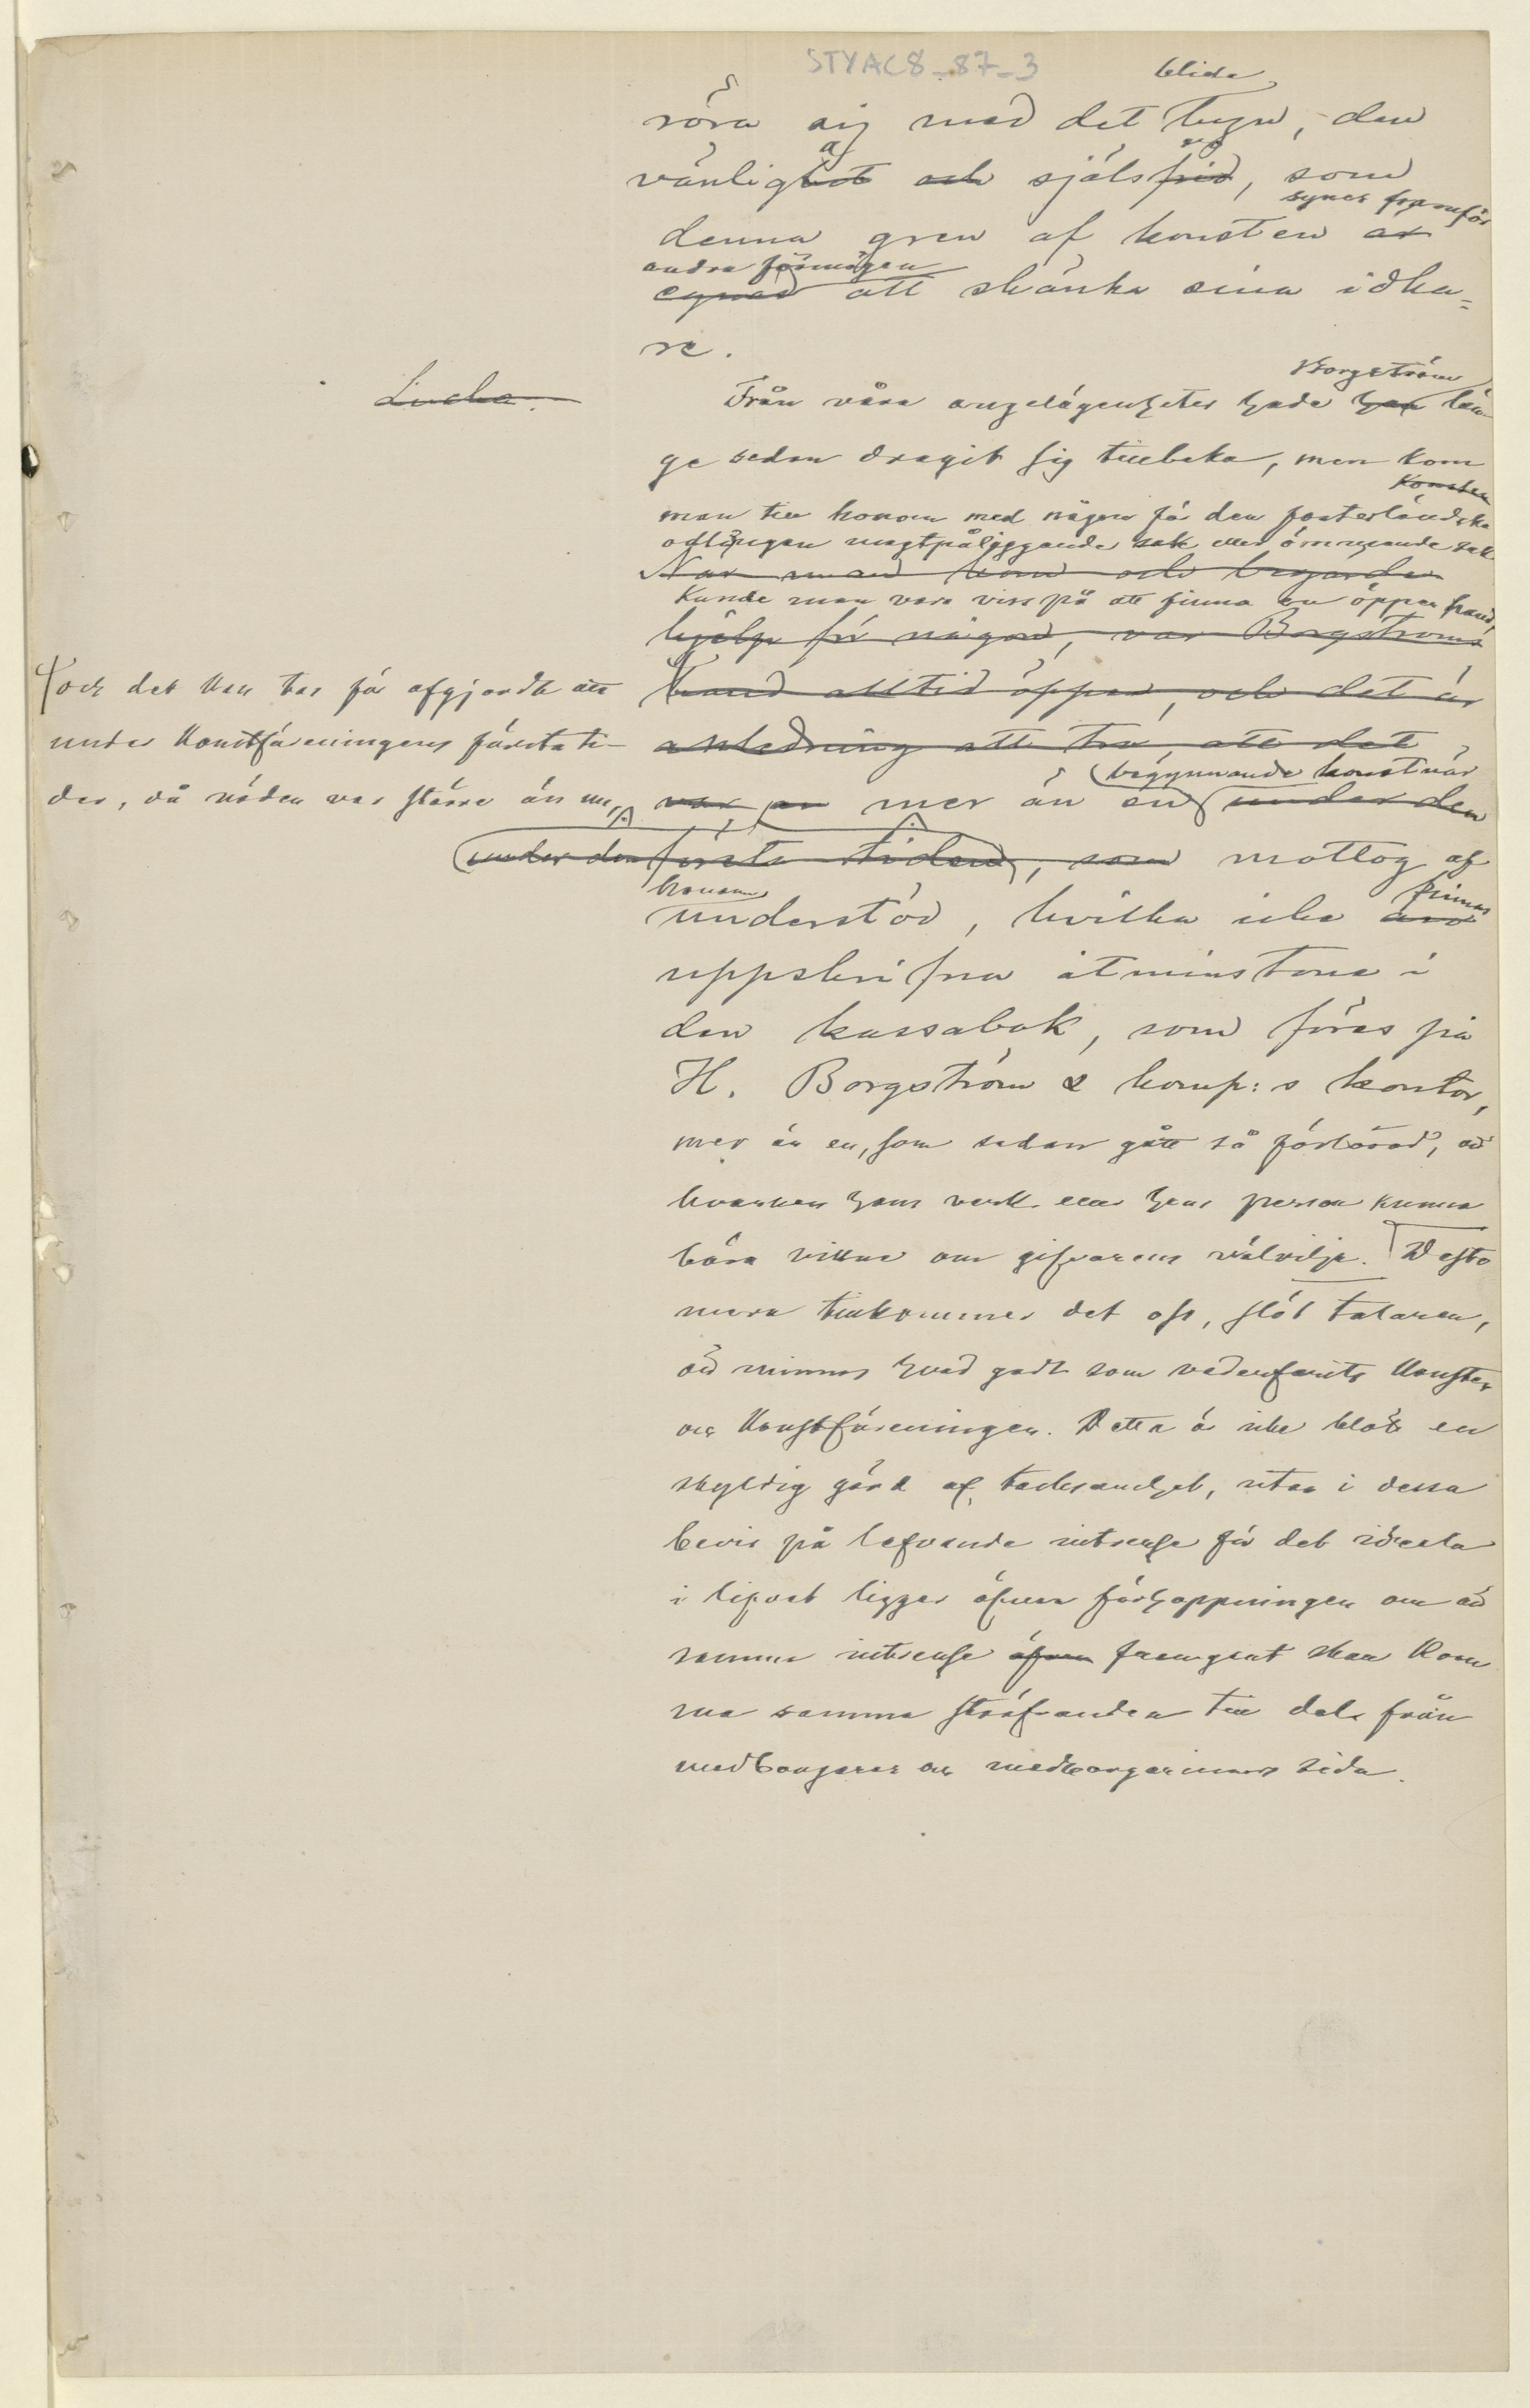 STYAC8_87_3
blida
röra sig med det lugn, den
vänlighet och själsfrid, som
synes framför
denna gren af konsten är
andra förmögen
egnad att skänka sina idka=
re.
Borgström
Lucka.
Från våra angelägenheter hade han län
ge sedan dragit sig tillbaka, men kom
Konsten
man till honom med någon för den fosterländska
odlingen magtpåliggande sak eller ömmande sak
När man kom och begärde
kunde man vara viss på att finna en öppen hand,
hjälp för någon, var Borgströms
hand alltid öppen, och det är
och det kan tas för afgjordt att
under Konstföreningens första ti-
der, då nöden var större än nu,
anledning att tro, att det
begynnande konstnär
var en mer än en under den
under den första tiden, som mottog af
honom
finnas
understöd, hvilka icke äro
uppskrifna åtminstone i
den kassabok, som föres på
H. Borgström & komp:s kontor,
mer än en, som sedan gått så förlorad, att
hvarken hans verk eller hans person kunna
bära vittne om gifvarens välvilja. Desto
mera tillkommer det oss, slöt talaren,
att minnas hvad godt som vederfarits Konsten
och Konstföreningen. Detta är icke blott en
skyldig gärd af tacksamhet, utan i dessa
bevis på lefvande intresse för det ideela
i lifvet ligger äfven förhoppningen om att
samma intresse äfven framgent skall kom
ma samma sträfvanden till dels från
medborgares och medborgarinnors sida.